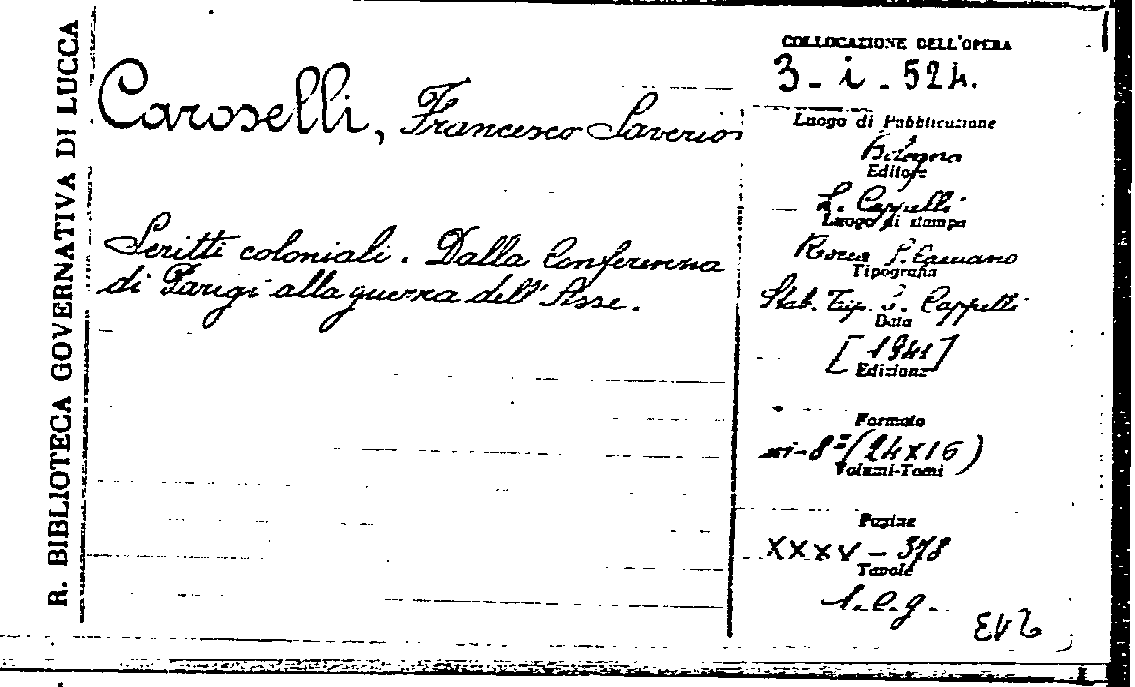 R. BIBLIOTECA GOVERNATIVA DI LUCCA
Caroselli, Francesco Saverio
Scritti coloniali. Dalla Conferenza
di Parigi alla guerra dell'Asse.
COLLOCAZIONE DELL'OPERA
3 - i - 524.
Luogo di Pubblicazione
Bologna
Editore
L. Cappelli
Luogo di stampa
Rocca S. Casciano
Tipografia
Stab. Tip. L. Cappelli
Data
[1941]
Edizione
Formato
in-8° (24x16)
Volumi-Tomi
Pagine
XXXV - 378
Tavole